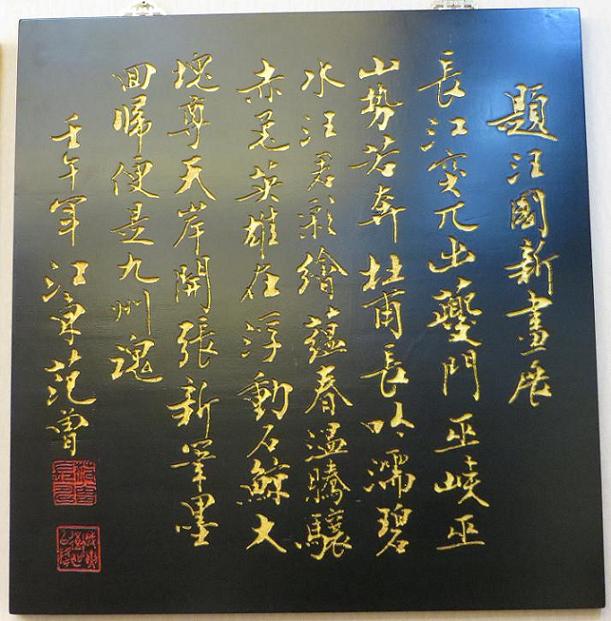 題汪國新畫展
長江突兀出夔門巫峽巫
山势若奔杜甫長吟濡碧
水汪君彩繪蘊春温騰驤
赤兔英雄在浮動石鯨大
塊尊天岸開張新筆墨
回歸便是九州魂
壬午年江東范曾